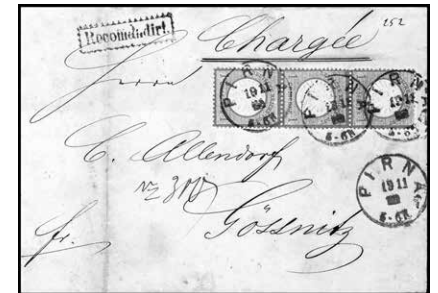 Recomandirt.
Chargée
252
Herrn
PIRNA
19 11
5-6N
PIRNA
19 11
5-6N
PIRNA
19 11
5-6N
C. Allendorf
PIRNA
19 11
5-6N
fr.
Gössnitz